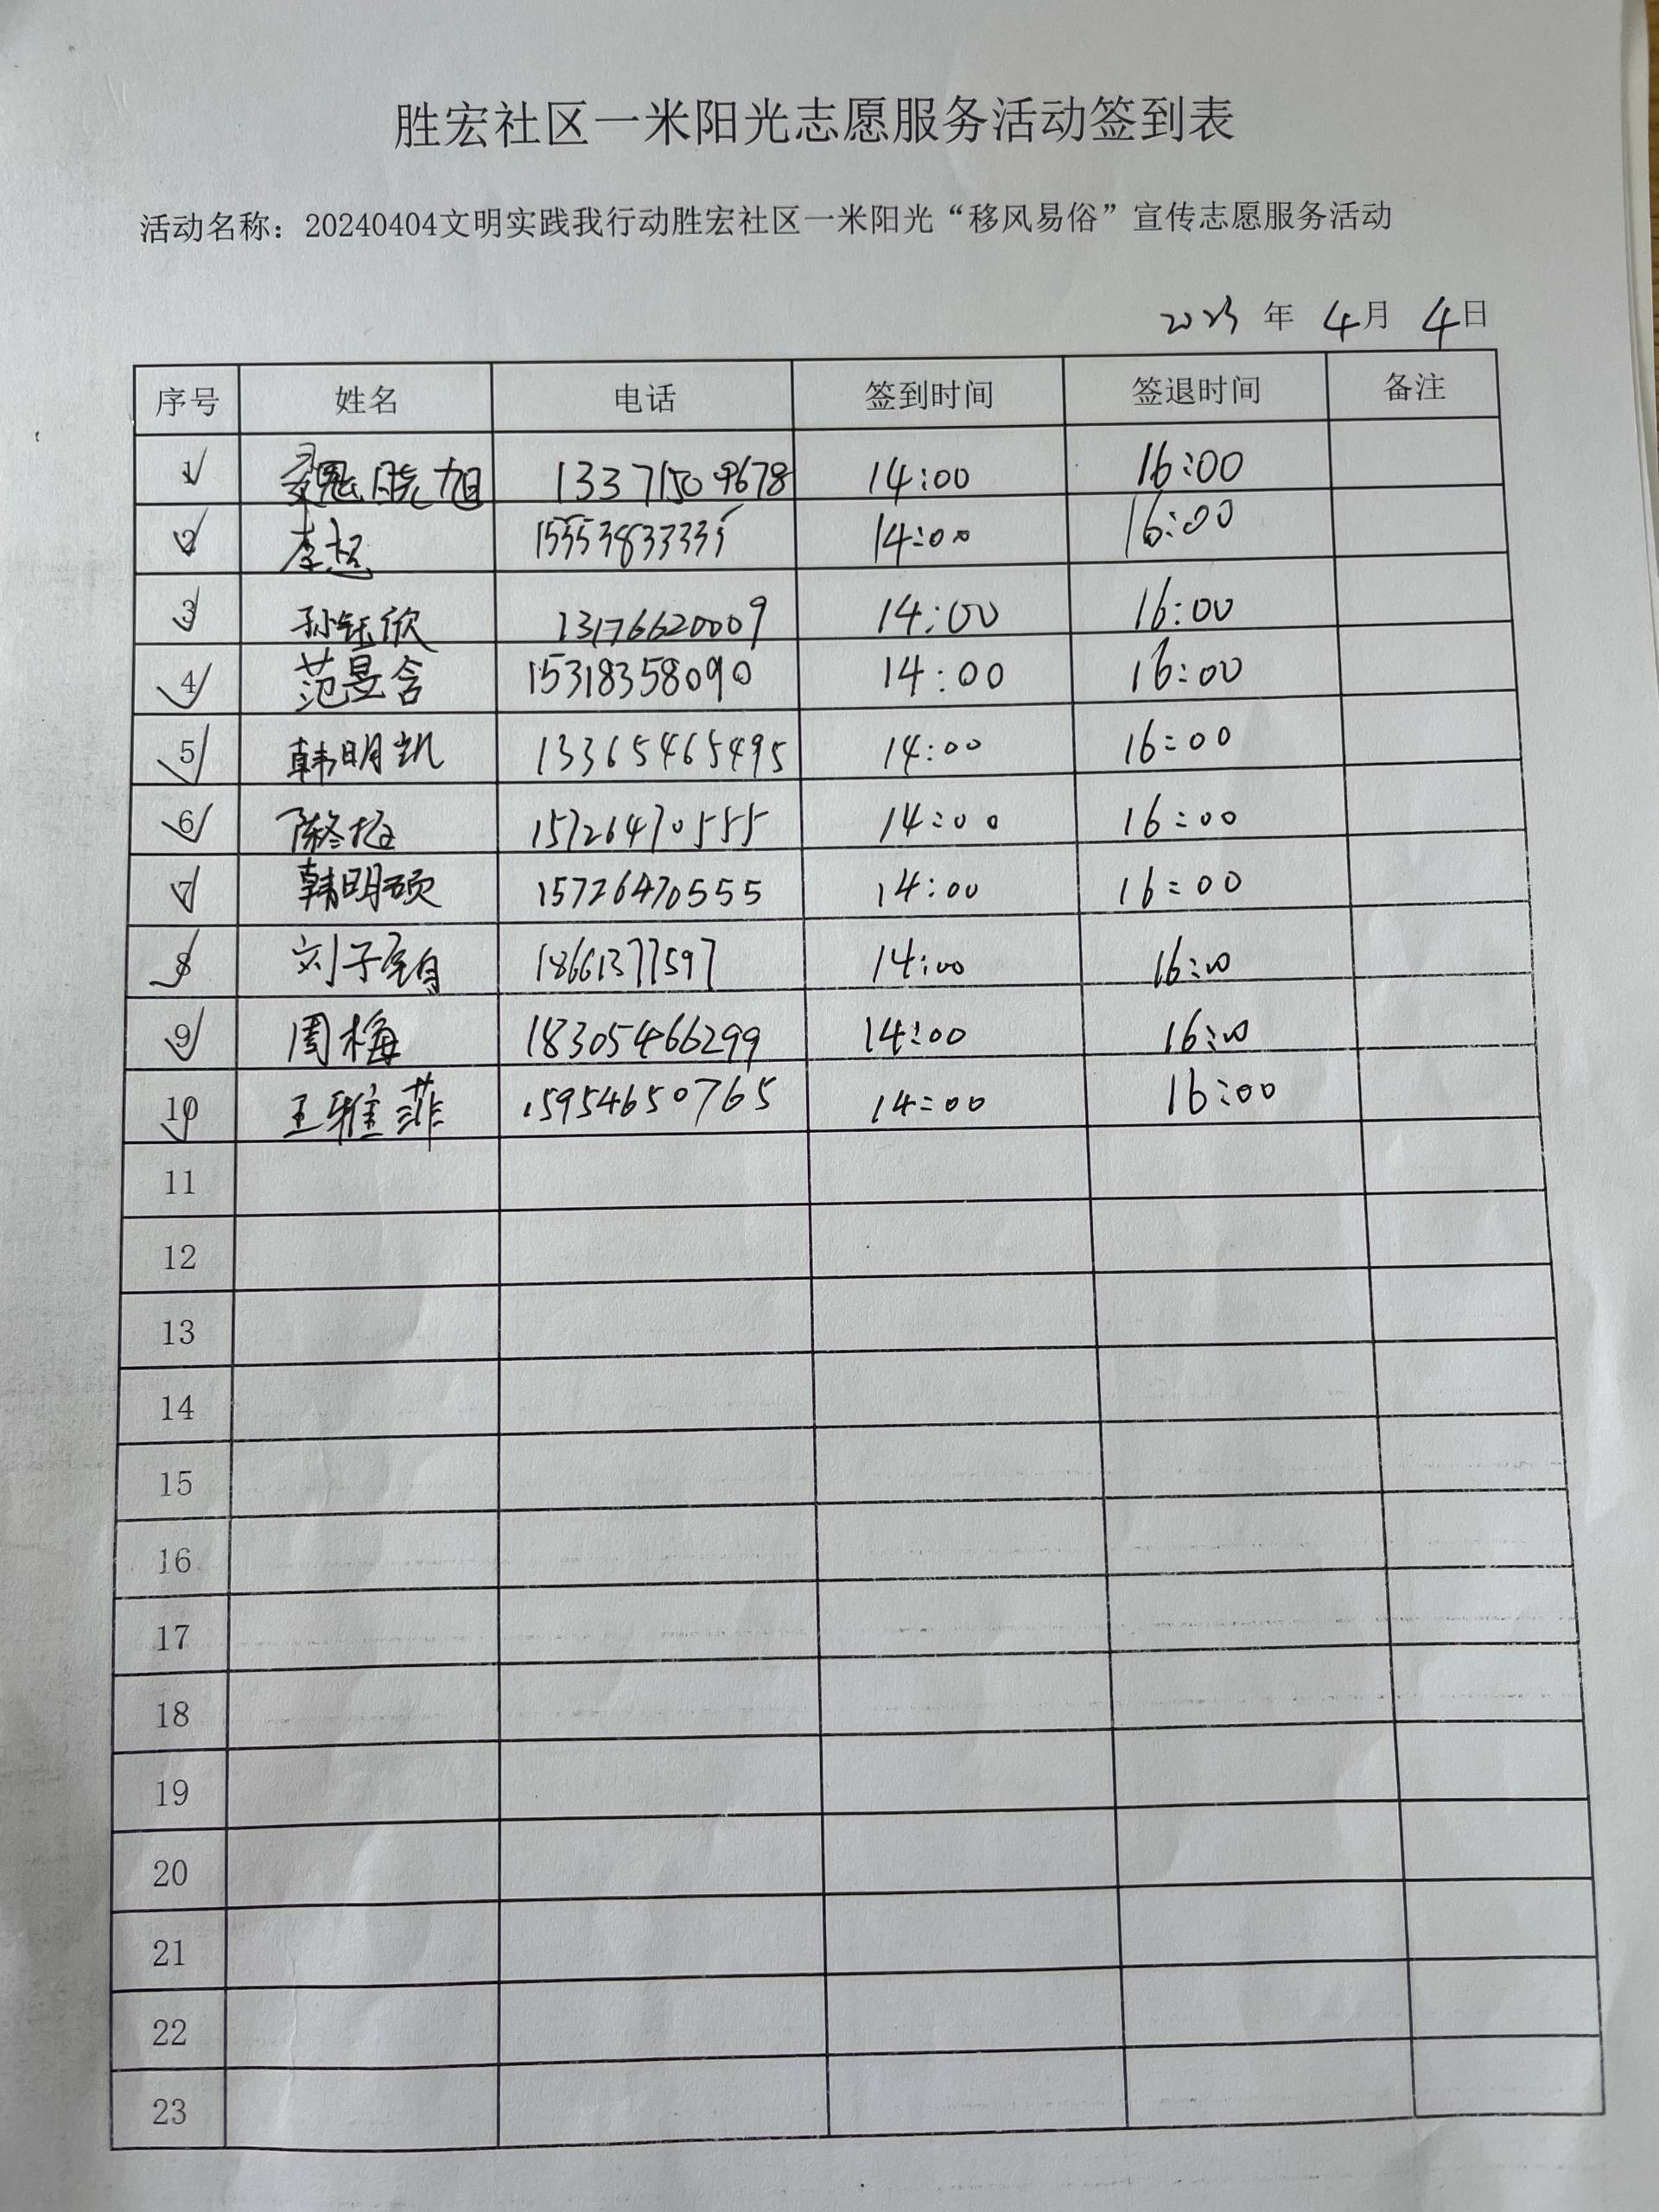 胜宏社区一米阳光志愿服务活动签到表
活动名称：20240404文明实践我行动胜宏社区一米阳光“移风易俗”宣传志愿服务活动
2023 年 4月 4日
序号 姓名 电话 签到时间 签退时间 备注
1 魏晓旭 13371509678 14:00 16:00
2 李超 15553833335 14:00 16:00
3 孙钰欣 13176620009 14:00 16:00
4 范昱含 15318358090 14:00 16:00
5 韩明凯 13365465495 14:00 16:00
6 陈冬梅 15726470555 14:00 16:00
7 韩明硕 15726470555 14:00 16:00
8 刘子 18661377597 14:00 16:00
9 周梅 18305466299 14:00 16:00
10 王雅菲 15954650765 14:00 16:00
11
12
13
14
15
16
17
18
19
20
21
22
23